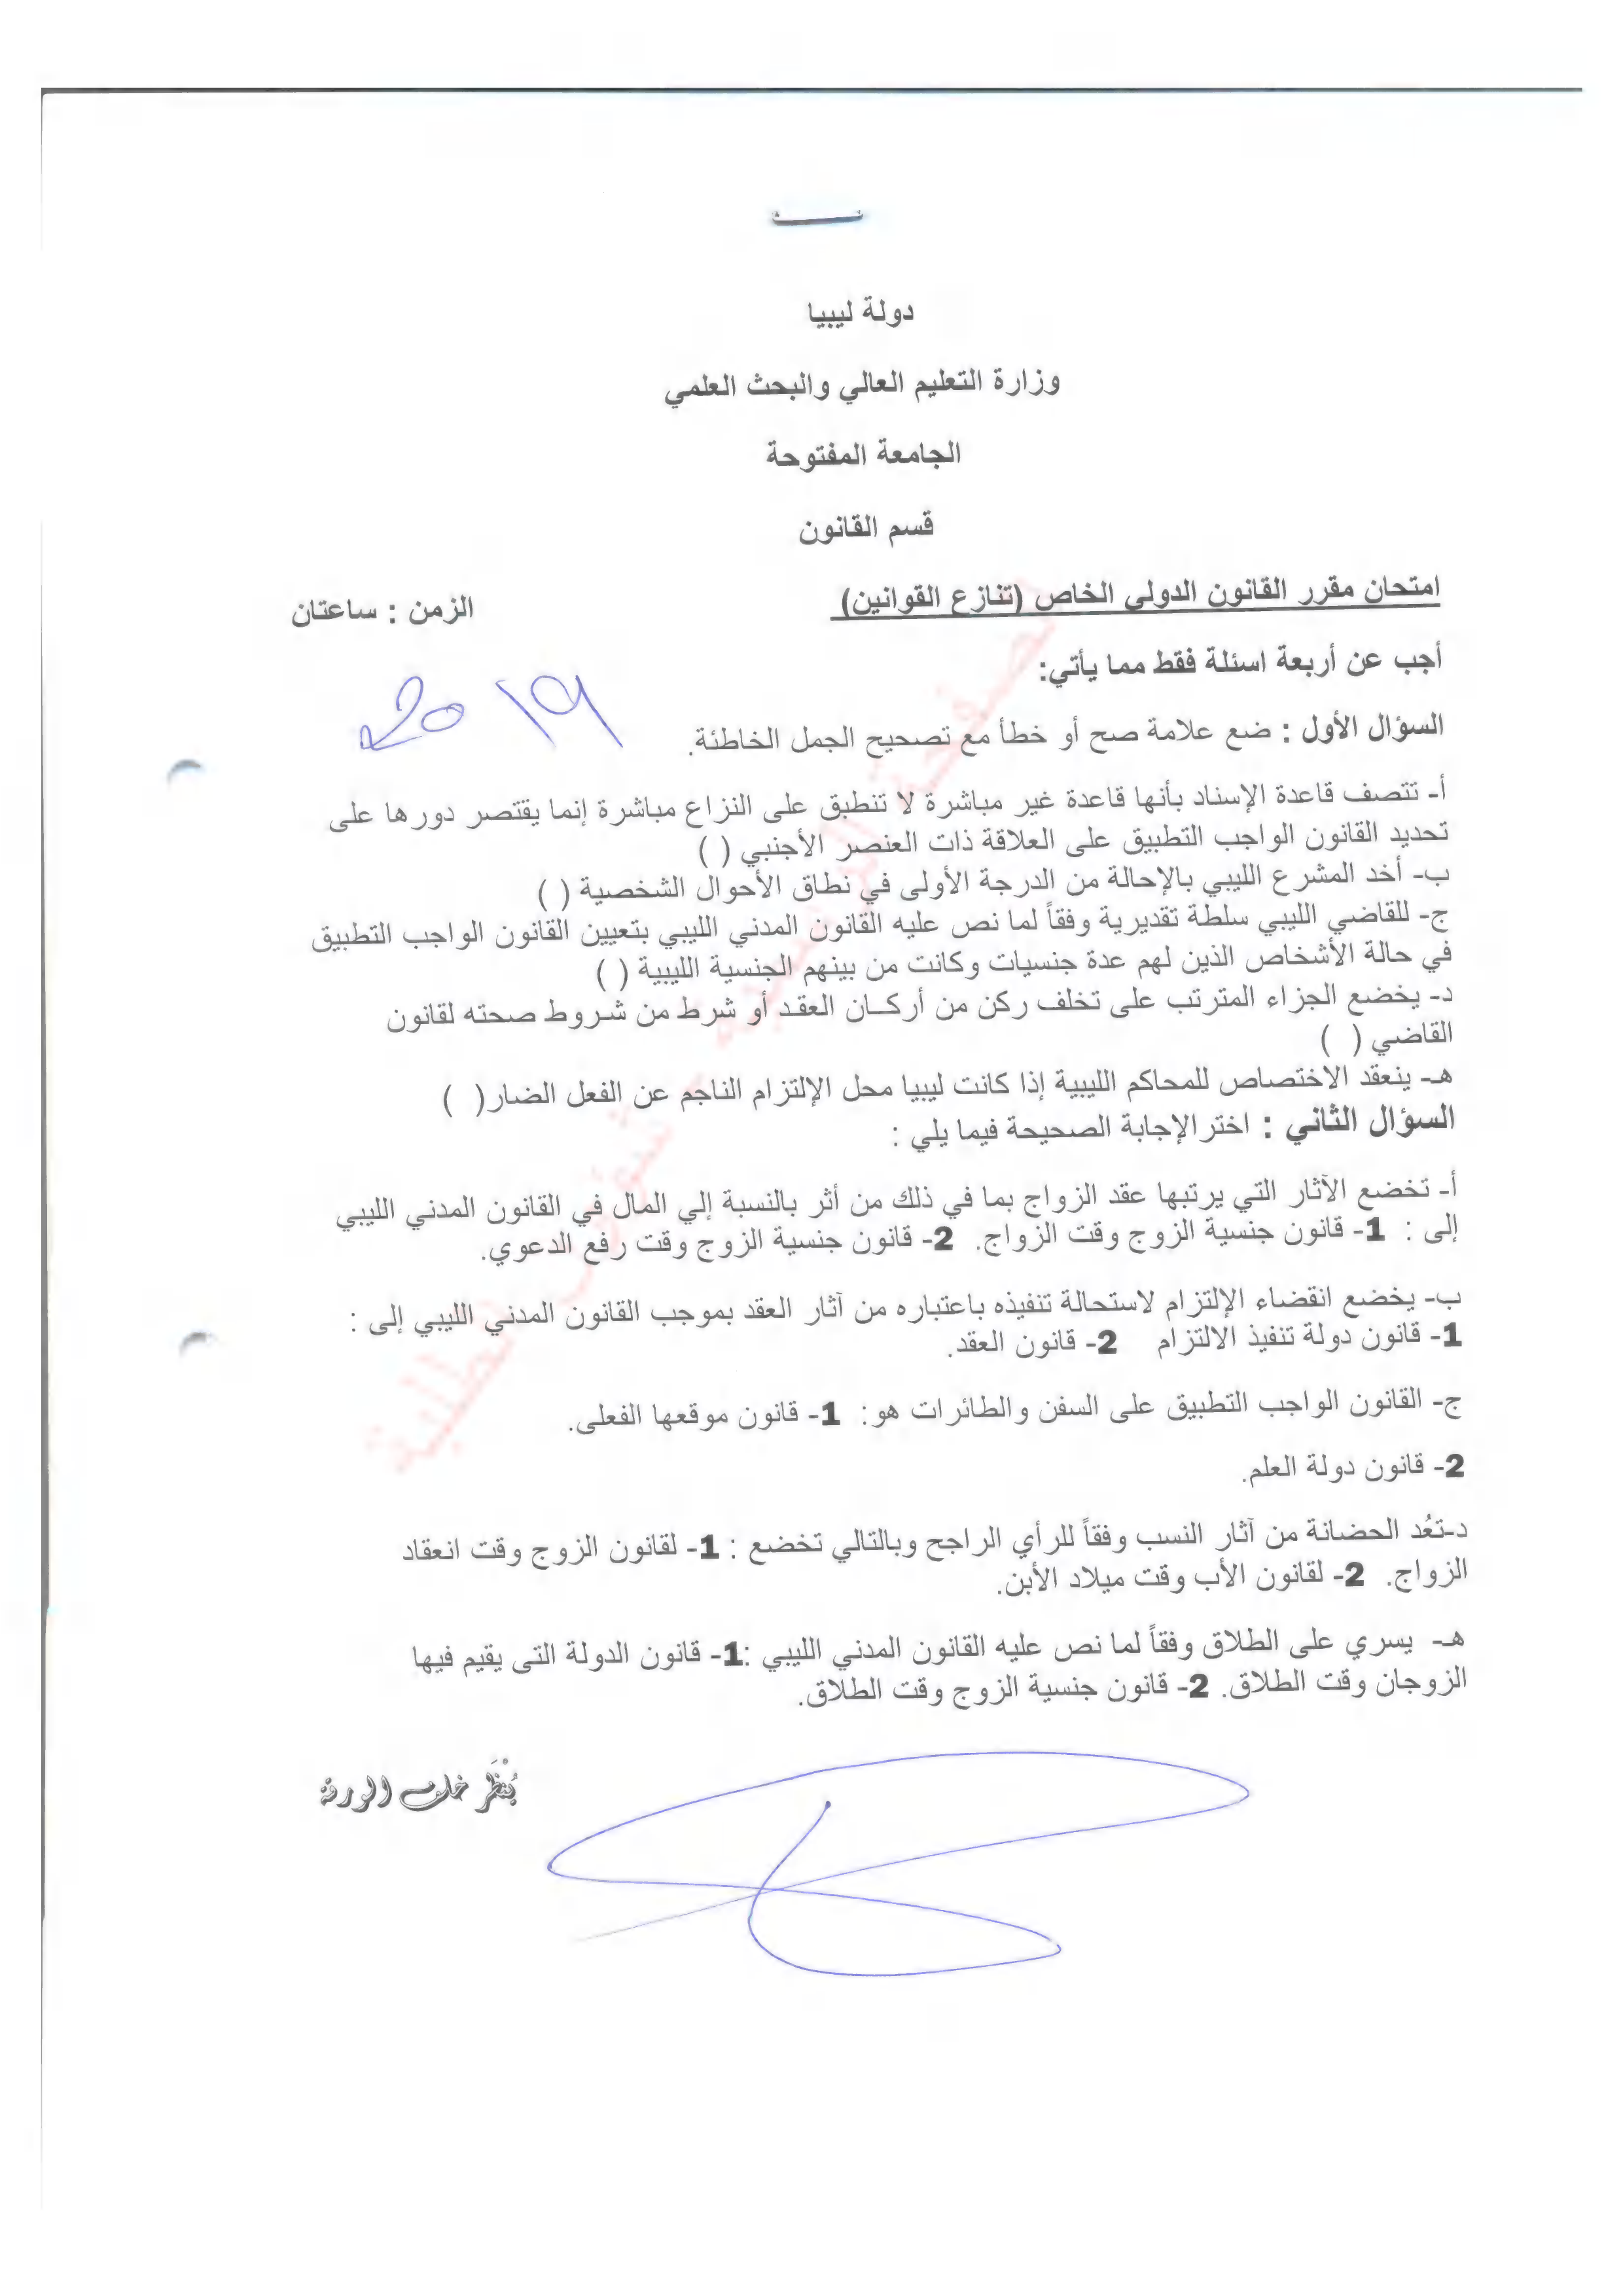 دولة ليبيا
وزارة التعليم العالي والبحث العلمي
الجامعة المفتوحة
قسم القانون
امتحان مقرر القانون الدولي الخاص (تنازع القوانين) الزمن : ساعتان
أجب عن أربعة اسئلة فقط مما يأتي:
السؤال الأول : ضع علامة صح أو خطأ مع تصحيح الجمل الخاطئة.
أ- تتصف قاعدة الإسناد بأنها قاعدة غير مباشرة لا تنطبق على النزاع مباشرة إنما يقتصر دورها على
تحديد القانون الواجب التطبيق على العلاقة ذات العنصر الأجنبي ( )
ب- أخد المشرع الليبي بالإحالة من الدرجة الأولى في نطاق الأحوال الشخصية ( )
ج- للقاضي الليبي سلطة تقديرية وفقاً لما نص عليه القانون المدني الليبي بتعيين القانون الواجب التطبيق
في حالة الأشخاص الذين لهم عدة جنسيات وكانت من بينهم الجنسية الليبية ( )
د- يخضع الجزاء المترتب على تخلف ركن من أركان العقد أو شرط من شروط صحته لقانون
القاضي ( )
هـ- ينعقد الاختصاص للمحاكم الليبية إذا كانت ليبيا محل الإلتزام الناجم عن الفعل الضار( )
السؤال الثاني : اختر الإجابة الصحيحة فيما يلي :
أ- تخضع الآثار التي يرتبها عقد الزواج بما في ذلك من أثر بالنسبة إلي المال في القانون المدني الليبي
إلى : 1- قانون جنسية الزوج وقت الزواج. 2- قانون جنسية الزوج وقت رفع الدعوي.
ب- يخضع انقضاء الإلتزام لاستحالة تنفيذه باعتباره من آثار العقد بموجب القانون المدني الليبي إلى :
1- قانون دولة تنفيذ الالتزام 2- قانون العقد.
ج- القانون الواجب التطبيق على السفن والطائرات هو: 1- قانون موقعها الفعلى.
2- قانون دولة العلم.
د-تعُد الحضانة من آثار النسب وفقاً للرأي الراجح وبالتالي تخضع : 1- لقانون الزوج وقت انعقاد
الزواج. 2- لقانون الأب وقت ميلاد الأبن.
هـ- يسري على الطلاق وفقاً لما نص عليه القانون المدني الليبي :1- قانون الدولة التى يقيم فيها
الزوجان وقت الطلاق. 2- قانون جنسية الزوج وقت الطلاق.
يُنْظَر خلف الورقة